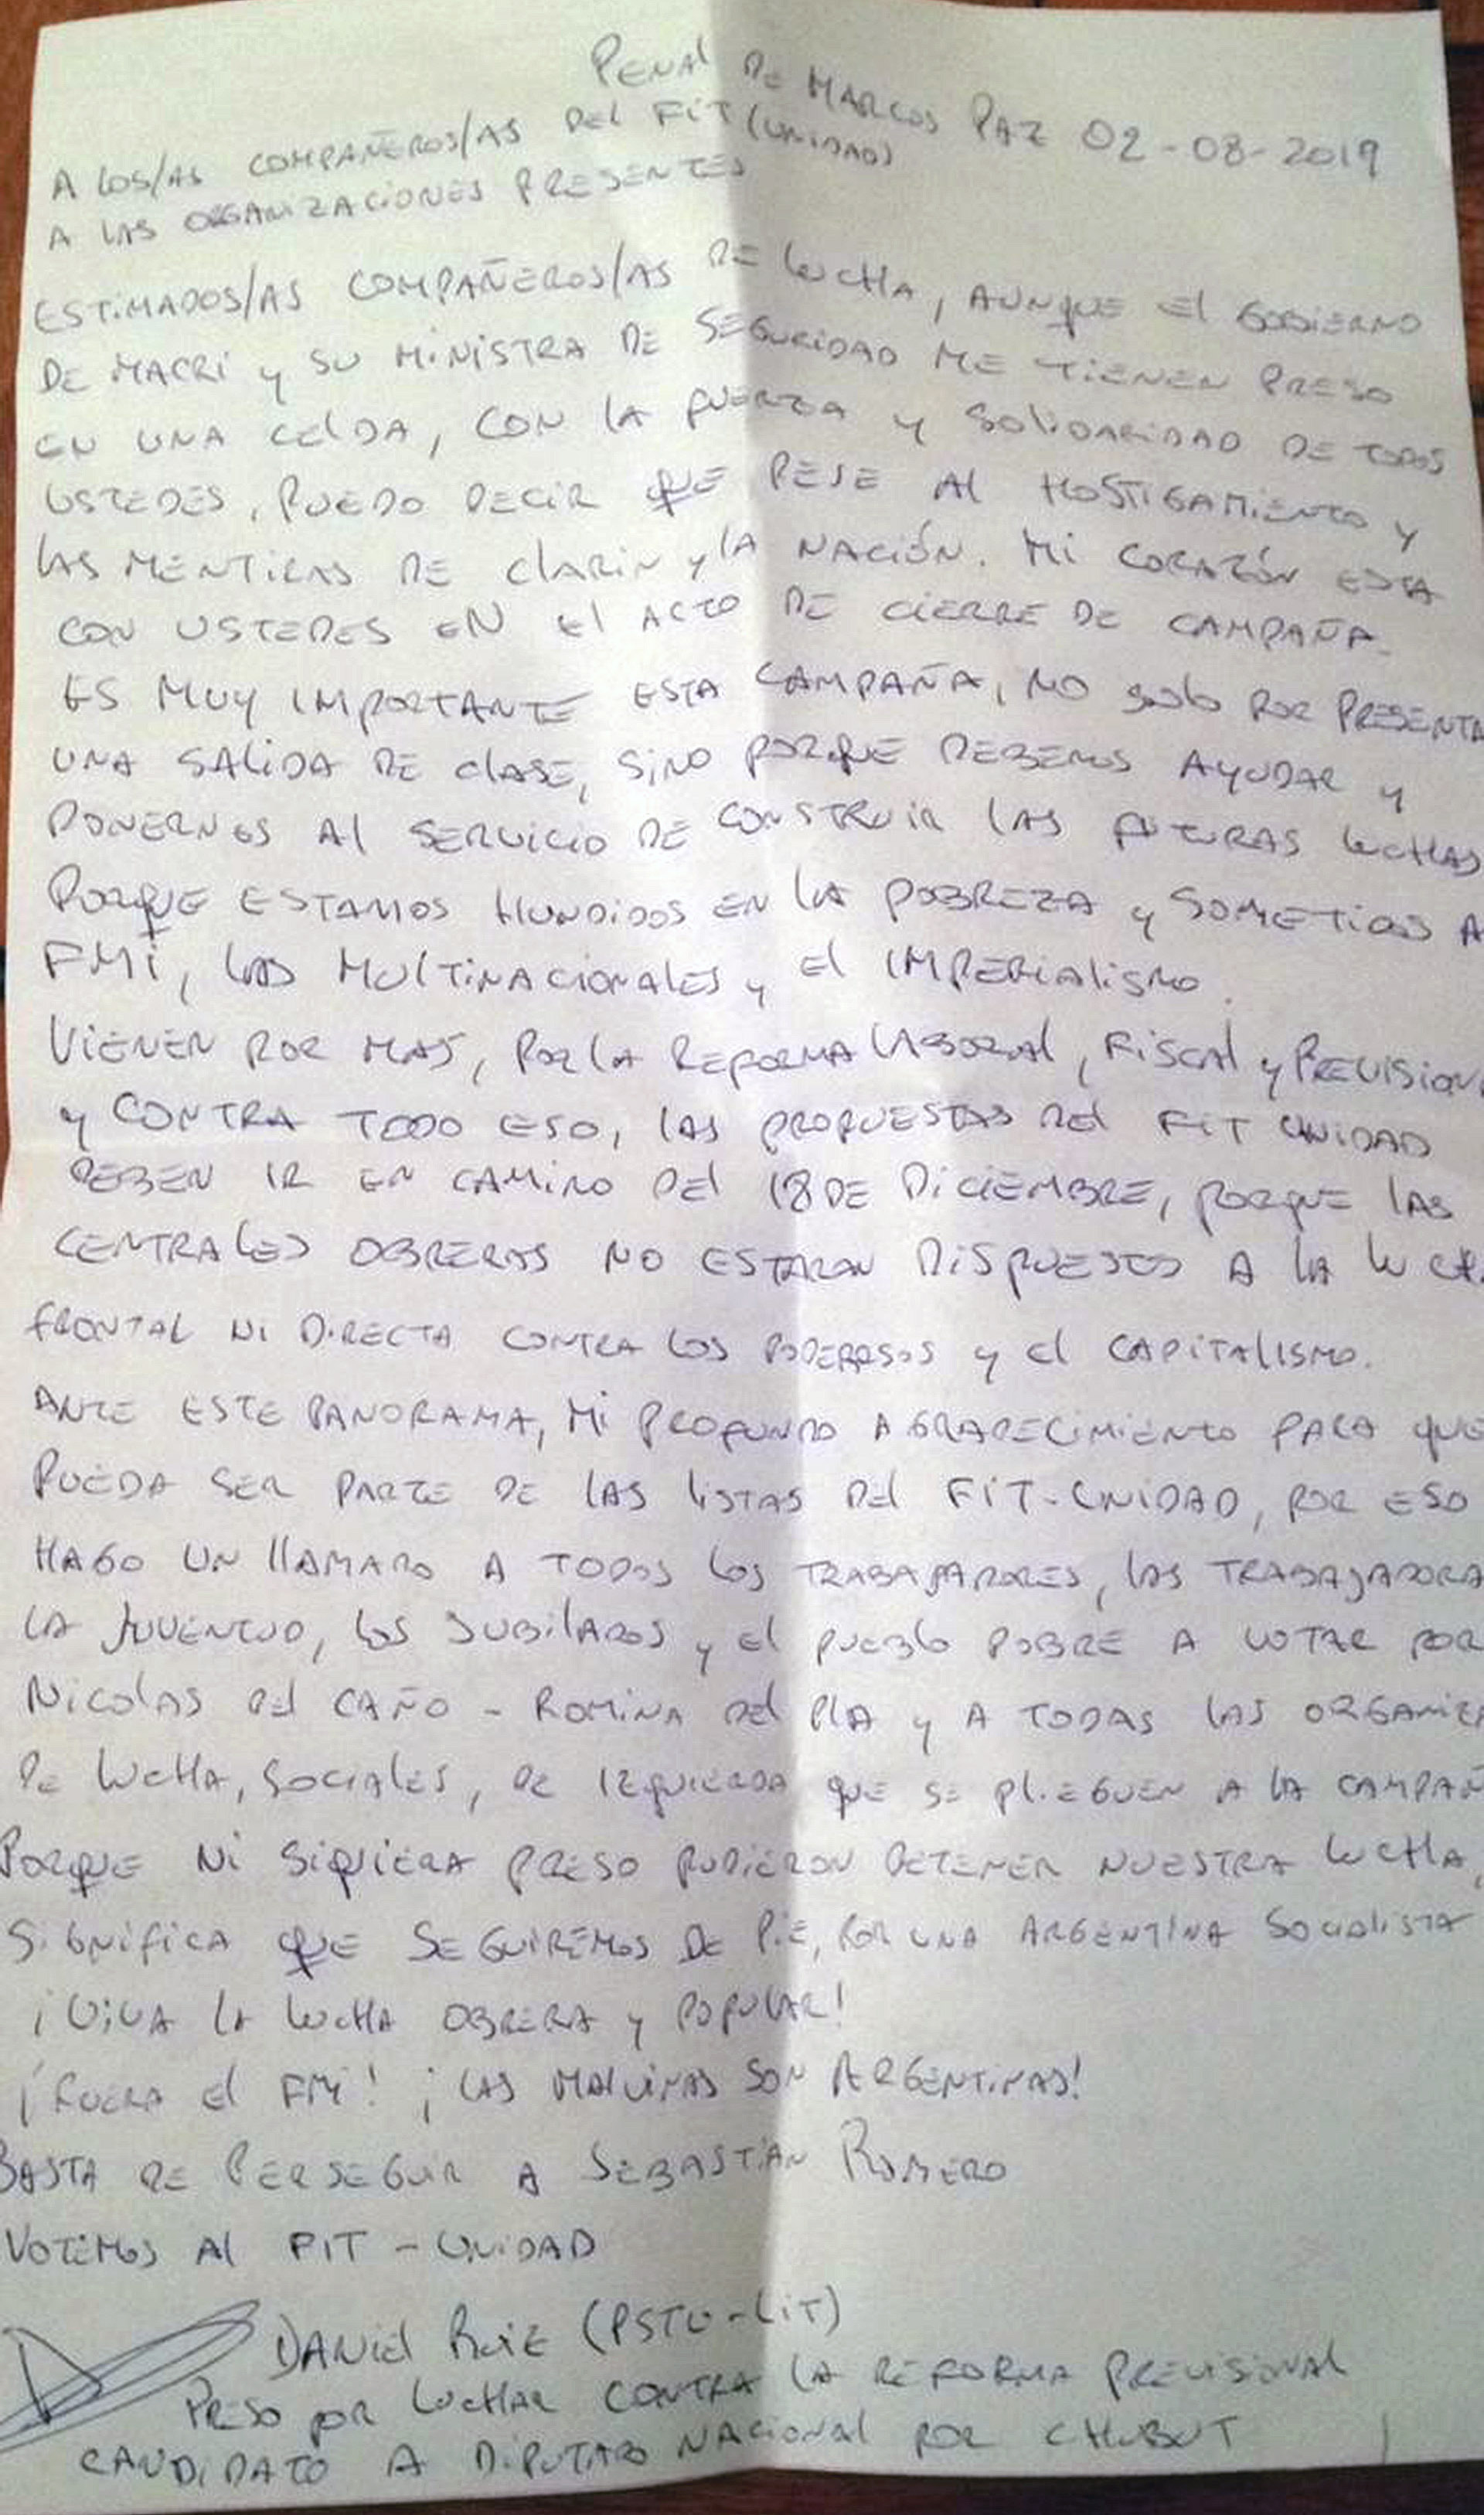 PENAL DE MARCOS PAZ 02-08-2019
A LOS/AS COMPAÑEROS/AS DEL FIT (UNIDAD)
A LAS ORGANIZACIONES PRESENTES
ESTIMADOS/AS COMPAÑEROS/AS DE LUCHA, AUNQUE El GOBIERNO
DE MACRI y SU MINISTRA DE SEGURIDAD ME TIENEN PRESO
EN UNA CELDA, CON LA FUERZA y SOLIDARIDAD DE TODOS
USTEDES, PUEDO DECIR QUE PESE Al HOSTIGAMIENTO y
LAS MENTIRAS DE CLARIN y LA NACIÓN. MI CORAZÓN ESTA
CON USTEDES EN El ACTO DE CIERRE DE CAMPAÑA.
ES MUY IMPORTANTE ESTA CAMPAÑA, NO SOLO POR PRESENTA
UNA SALIDA DE CLASE, SINO PORQUE DEBEMOS AYUDAR y
PONERNOS Al SERVICIO DE CONSTRUIR LAS FUTURAS LUCHAS
PORQUE ESTAMOS HUNDIDOS EN LA POBREZA y SOMETIDOS A
FMI, LAS MULTINACIONALES y El IMPERIALISMO.
VIENEN POR MAS, POR LA REFORMA LABORAL, FISCAL y PREVISION
y CONTRA TODO ESO, LAS PROPUESTAS DEL FIT UNIDAD
DEBEN IR EN CAMINO DEL 18 DE DICIEMBRE, PORQUE LAS
CENTRALES OBRERAS NO ESTARAN DISPUESTOS A LA LUCH
FRONTAL NI DIRECTA CONTRA LOS PODEROSOS y El CAPITALISMO.
ANTE ESTE PANORAMA, MI PROFUNDO AGRADECIMIENTO PARA QUE
PUEDA SER PARTE DE LAS LISTAS DEL FIT-UNIDAD, POR ESO
HAGO UN LLAMADO A TODOS LOS TRABAJADORES, LAS TRABAJADORA
LA JUVENTUD, LOS JUBILADOS y El PUEBLO POBRE A VOTAR POR
NICOLAS DEL CAÑO - ROMINA DEL PLA y A TODAS LAS ORGANIZA
DE LUCHA, SOCIALES, DE IZQUIERDA QUE SE PLIEGUEN A LA CAMPAÑ
PORQUE NI SIQUIERA PRESO PUDIERON DETENER NUESTRA LUCHA,
SIGNIFICA QUE SEGUIREMOS DE PIE, POR UNA ARGENTINA SOCIALISTA
¡VIVA LA LUCHA OBRERA y POPULAR!
¡FUERA El FMI! ¡LAS MALVINAS SON ARGENTINAS!
BASTA DE PERSEGUIR A SEBASTIÁN ROMERO
VOTEMOS Al FIT - UNIDAD
DANIEL RUIZ (PSTU-LIT)
PRESO POR LUCHAR CONTRA LA REFORMA PREVISIONAL
CANDIDATO A DIPUTADO NACIONAL POR CHUBUT